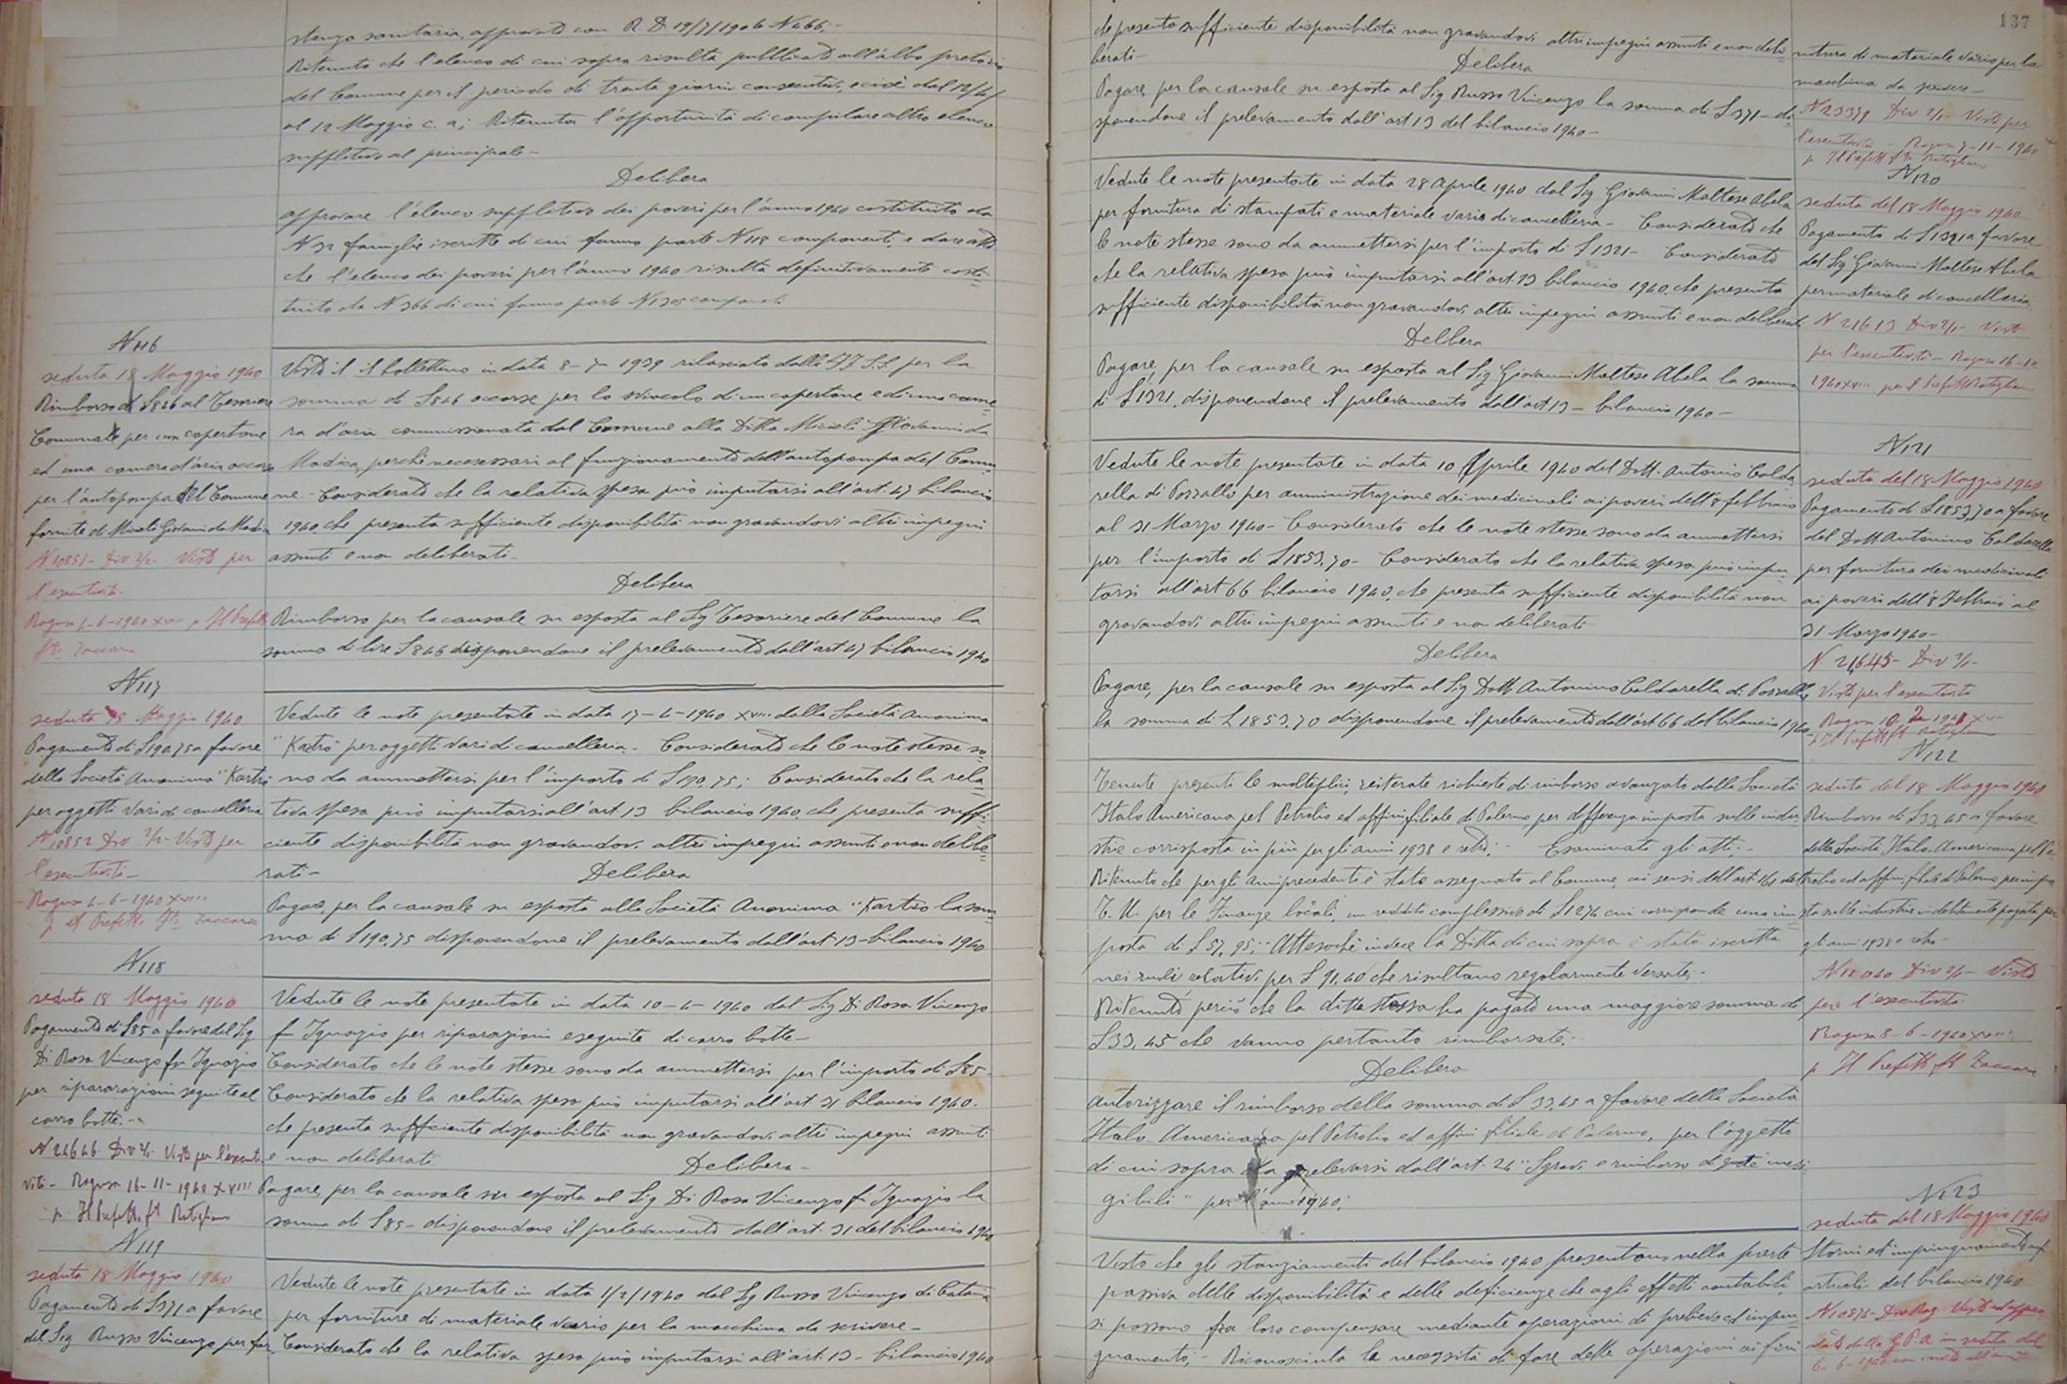 stenza sanitaria, approvato con R D 19/7/1906 N 466.-
Ritenuto che l'elenco di cui sopra risulta pubblicato all'albo pretorio
del Comune per il periodo di trenta giorni consecutivi, e cioè dal 12/4/
al 12 Maggio c. a; Ritenuta l'opportunità di compilare altro elenco
suppletivo al principale-
Delibera
approvare l'elenco suppletivo dei poveri per l'anno 1940 costituito da
N 32 famiglie iscritte di cui fanno parte N 118 componenti, e dare atto
che l'elenco dei poveri per l'anno 1940 risulta definitivamente costi=
tuito da N 366 di cui fanno parte N 1305 componenti.
N 116
seduta 18 Maggio 1940
Rimborso di £ 846 al Tesoriere
Comunale per un copertone
ed una camera d'aria occorsi
per l'autopompa del Comune
fornite da Giovanni da Modica
N 10851- Div 2/1- Visto per
l'esecutività-
Ragusa 1-6-1940 XVIII p Il Prefetto
fto Zaccaria
Visto il il bollettino in data 8-7-1939 rilasciato dalle FF SS per la
somma di £ 846 occorse per lo svincolo di un copertone e di una came=
ra d'aria commissionata dal Comune alla Ditta Giovanni da
Modica, perchè necessari al funzionamento dell'autopompa del Comu
ne- Considerato che la relativa spesa può imputarsi all'art. 47 bilancio
1940 che presenta sufficiente disponibilità non gravandovi altri impegni
assunti e non deliberati-
Delibera
Rimborso per la causale su esposta al Sig Tesoriere del Comune la
somma di lire £ 846 disponendone il prelevamento dall'art 47 bilancio 1940
N 117
seduta 18 Maggio 1940
Pagamento di £ 190,75 a favore
della Società Anonima "Kartro
per oggetti vari di cancelleria
N 10852 Div 2/1- Visto per
l'esecutività-
Ragusa 6-6-1940 XVIII
p il Prefetto fto Zaccaria
Vedute le note presentate in data 17-4-1940 XVIII dalla Società Anonima
"Kartro" per oggetti vari di cancelleria- Considerato che le note stesse so=
no da ammettersi per l'importo di £ 190,75; Considerato che la rela
tiva spesa può imputarsi all'art 13 bilancio 1940, che presenta suffi=
ciente disponibilità non gravandovi altri impegni assunti e non delibe=
rati-
Delibera
Pagare, per la causale su esposta alla Società Anonima "Kartro la som
ma di £ 190,75 disponendone il prelevamento dall'art 13-bilancio 1940
N 118
seduta 18 Maggio 1940
Pagamento di £ 85 a favore del Sig
Di Rosa Vincenzo fu Ignazio
per ripararazioni seguite al
carro botte.-
N 24646 Div 2/1 Visto per l'esecuti
vità- Ragusa 16-11-1940 XVIII
p Il Prefetto fto
Vedute le note presentate in data 10-4-1940 dal Sig Di Rosa Vincenzo
fu Ignazio per riparazioni eseguite di carro botte-
Considerato che le note stesse sono da ammettersi per l'importo di £ 85-
Considerato che la relativa spesa può imputarsi all'art 31 bilancio 1940.
che presenta sufficiente disponibilità non gravandovi altri impegni assunti
e non deliberati.
Delibera-
Pagare, per la causale su esposta al Sig Di Rosa Vincenzo fu Ignazio la
somma di £ 85- disponendone il prelevamento dall'art. 31 del bilancio 1940
N 119
seduta 18 Maggio 1940
Pagamento di £ 371 a favore
del Sig Russo Vincenzo per for
Vedute le note presentate in data 1/2/1940 dal Sg Russo Vincenzo di Catania
per forniture di materiale vario per la macchina da scrivere-
Considerato che la relativa spesa può imputarsi all'art. 13- bilancio 1940
137
che presenta sufficiente disponibilità non gravandovi altri impegni assunti e non deli=
berati-
Delibera
Pagare, per la causale su esposta al Sig Russo Vincenzo la somma di £ 371- di=
sponendone il prelevamento dall'art 13 del bilancio 1940-
nitura di materiale vario per la
macchina da scrivere-
N 23379 Div 2/1- Visto per
l'esecutività Ragusa 7-11-1940
p Il Prefetto fto
N 120
seduta del 18 Maggio 1940
Pagamento di £ 1321 a favore
del Sig Giovanni Maltese Abela
per materiale di cancelleria
N 21613 Div 2/1- Visto
per l'esecutività- Ragusa 16-10
1940 XVIII per il Prefetto
Vedute le note presentate in data 28 Aprile 1940 dal Sig Giovanni Maltese Abela
per fornitura di stampati e materiale vario di cancelleria- Considerato che
le note stesse sono da ammettersi per l'importo di £ 1321- Considerato
che la relativa spesa può imputarsi all'art. 13 bilancio 1940, che presenta
sufficiente disponibilità non gravandovi altri impegni assunti e non deliberati
Delibera
Pagare, per la causale su esposta al Sig Giovanni Maltese Abela la somma
di £ 1321, disponendone il prelevamento dall'art 13- bilancio 1940-
N 121
seduta del 18 Maggio 1940
Pagamento di £ 1853,70 a favore
del Dott Antonino Caldarella
per fornitura dei medicinali
ai poveri dell'8 Febbraio al
31 Marzo 1940-
N. 21645- Div 2/1-
Visto per l'esecutività
Ragusa 10
p Il Prefetto
Vedute le note presentate in data 10 Aprile 1940 del Dott. Antonio Calda
rella di Pozzallo per amministrazione dei medicinali ai poveri dell'8 febbraio
al 31 Marzo 1940- Considerato che le note stesse sono da ammettersi
per l'importo di £ 1853,70- Considerato che la relativa spesa può impu=
tarsi all'art 66 bilancio 1940, che presenta sufficiente disponibilità non
gravandovi altri impegni assunti e non deliberati
Delibera
Pagare, per la causale su esposta al Sig Dott Antonino Caldarella di Pozzallo,
la somma di £ 1853,70 disponendone il prelevamento dall'art 66 del bilancio 1940
N 122
seduta del 18 Maggio 1940
Rimborso di £ 33,45 a favore
della Società Italo Americana pel Pe
trolio ed affini filiale di Palermo per impo
sta sulle industrie indebitamente pagata per
gli anni 1938 e retro-
N 11040 Div 2/1- Visto
per l'esecutività-
Ragusa 8-6-1940 XVIII
p Il Prefetto fto Zaccaria
Tenute presenti le molteplici, reiterate richieste di rimborso avanzate dalla Società
Italo Americana pel Petrolio ed affini filiale di Palermo, per differenza imposta sulle indu
strie corrisposta in più per gli anni 1938 e retro;- Esaminati gli atti;-
Ritenuto che per gli anni precedenti è stato assegnato al Comune, ai sensi dell'art. 161 del
T. U. per le Finanze locali, un reddito complessivo di £ 1276 cui corrisponde una im
posta di £ 57,95;- Attesochè invece la Ditta di cui sopra è stata iscritta
nei ruoli relativi per £ 91,40 che risultano regolarmente versate;-
Ritenuto perciò che la ditta stessa ha pagato una maggiore somma di
£ 33,45 che vanno pertanto rimborsate;-
Delibera
Autorizzare il rimborso della somma di £ 33,45 a favore della Società
Italo Americana pel Petrolio ed affini filiale di Palermo, per l'oggetto
di cui sopra da prelevarsi dall'art. 24 "Sgravi e rimborso di quote inesi
gibili" per l'anno 1940;
N 123
seduta del 18 Maggio 1940
Storni ed impinguamento di
articoli del bilancio 1940
N 10876- Div Rag Visto ed appro
vato dalla G P A in seduta del
6-6-1940
Visto che gli stanziamenti del bilancio 1940 presentano nella parte
passiva delle disponibilità e delle deficienze che agli effetti contabili,
si possono fra loro compensare mediante operazioni di prelievo ed impin
guamento;- Riconosciuta la necessità di fare delle operazioni ai fini